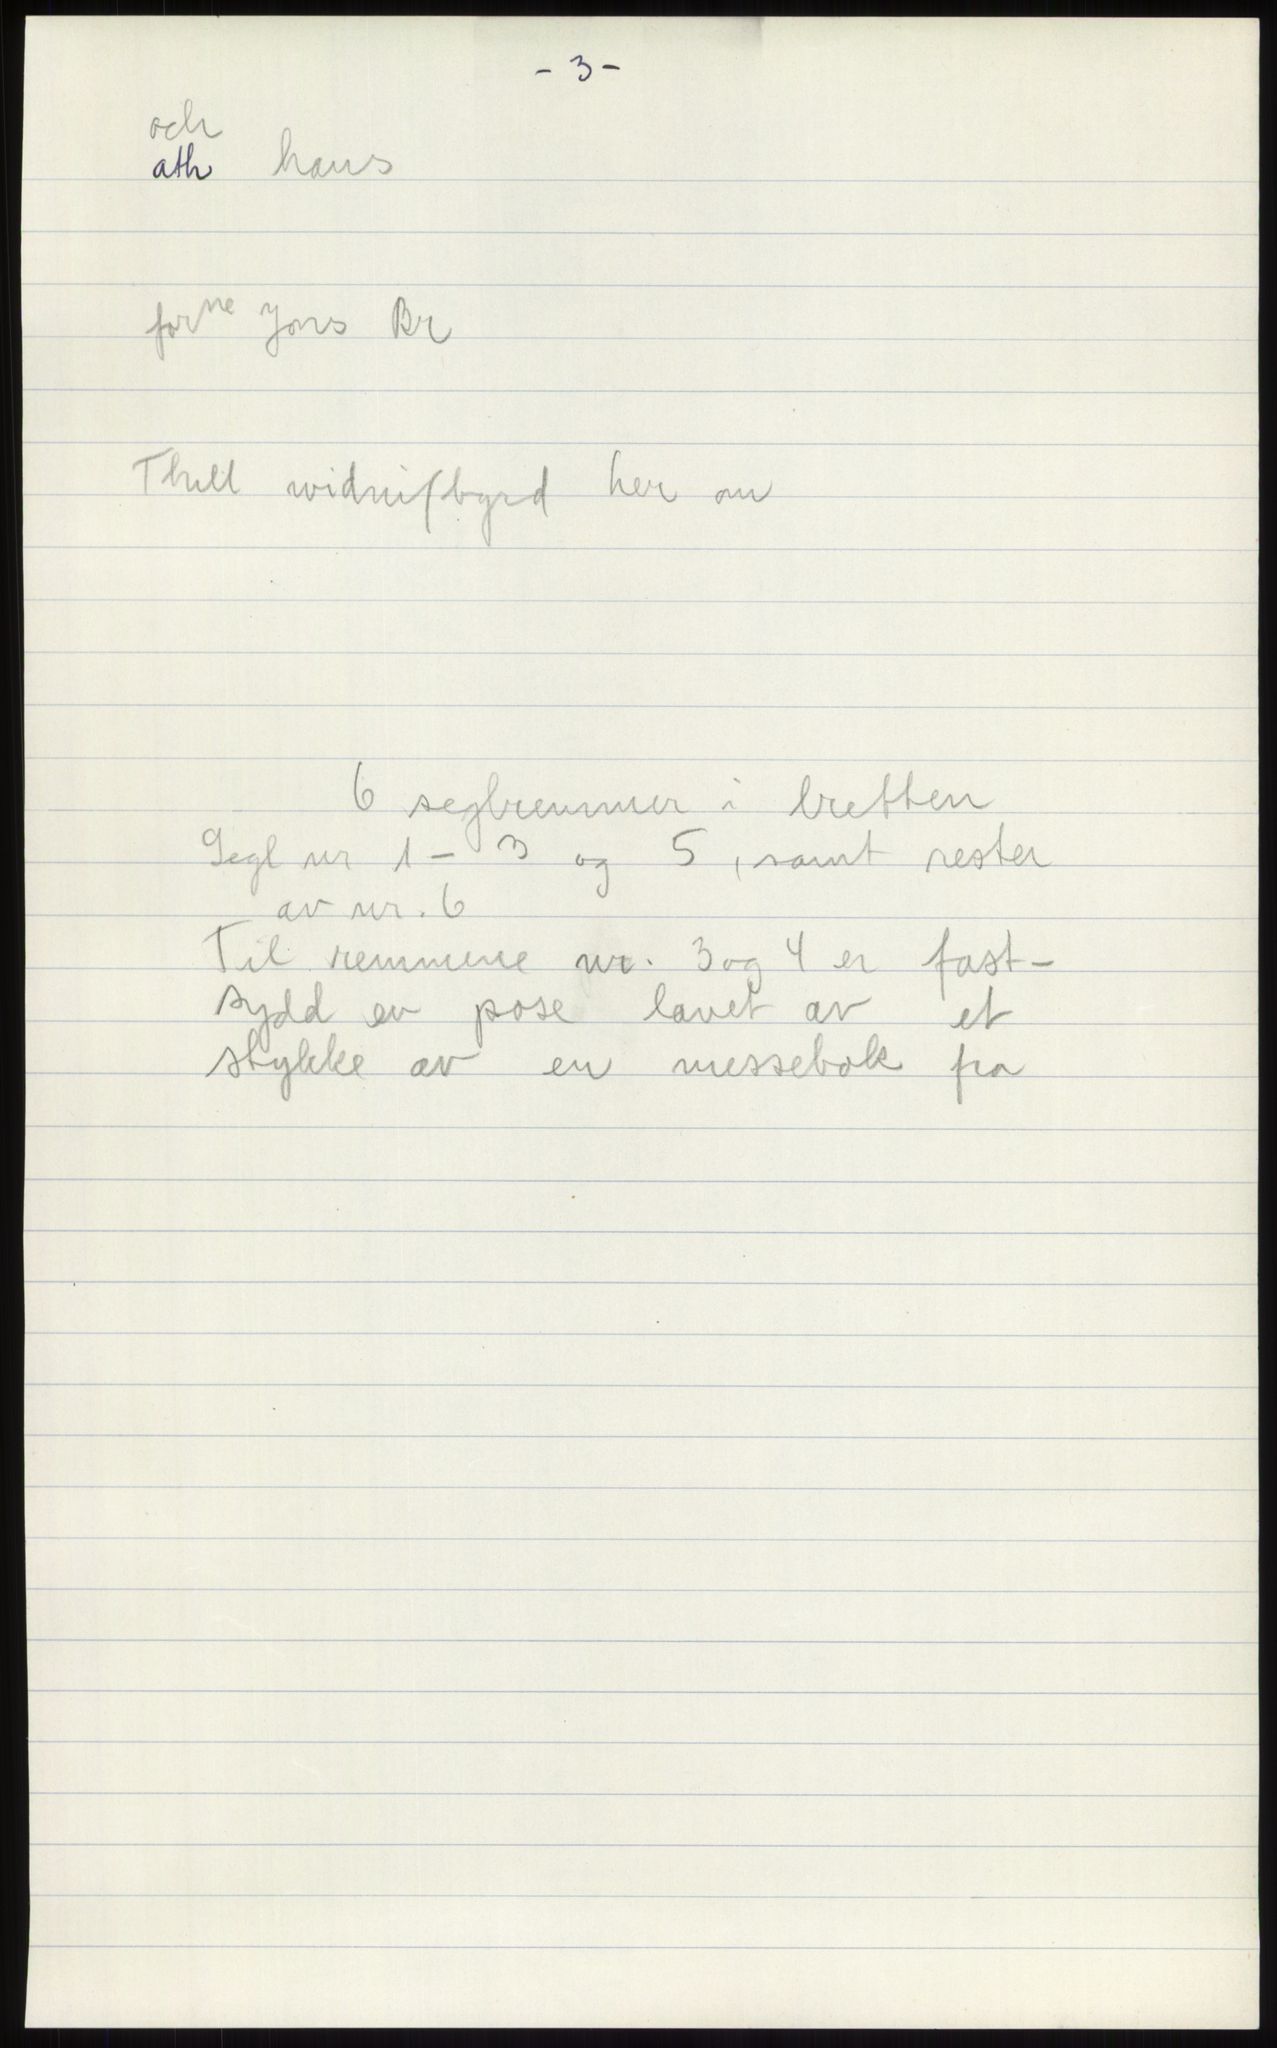 - 3 -
och
ath hans
forne Jons Br
Thill widnisbyrd her om
6 seglremmer i bretten
Segl nr 1 - 3 og 5, samt rester
av nr. 6
Til remmene nr. 3 og 4 er fast-
sydd en pose lavet av et
stykke av en messebok fra